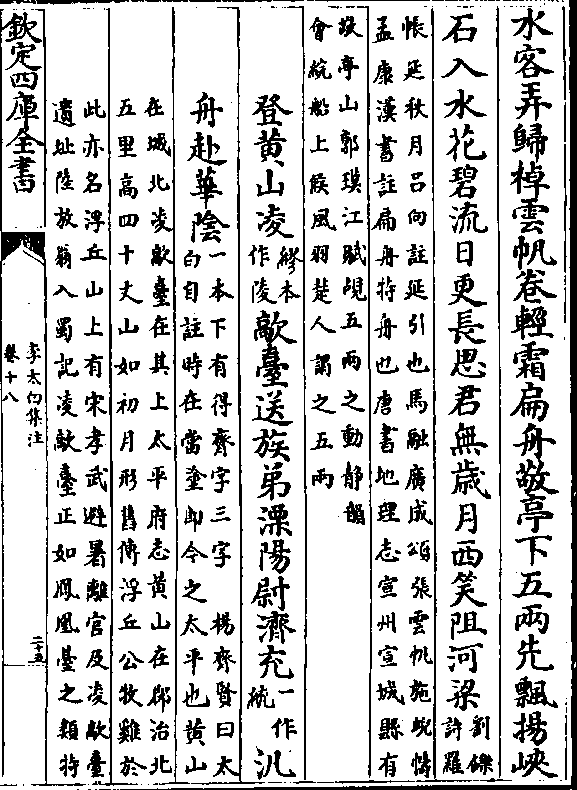 水客弄歸棹雲帆卷輕霜扁舟敬亭下五兩先飄揚峽
石入水花碧流日更長思君無歲月西笑阻河梁
劉鑠
詩羅
帳延秋月呂向註延引也馬融廣成頌張雲帆施蜺幬
孟康漢書註扁舟特舟也唐書地理志宣州宣城縣有
敬亭山郭璞江賦覘五兩之動靜韻
會綄船上候風羽楚人謂之五兩
登黃山凌
繆本
作陵
歊臺送族弟溧陽尉濟充
一作
統
汎
舟赴華陰
一本下有得齊字三字 楊齊賢曰太
白自註時在當塗即今之太平也黃山
在城北凌歊臺在其上太平府志黃山在郡治北
五里高四十丈山如初月形舊傳浮丘公牧雞於
此亦名浮丘山上有宋孝武避暑離宮及凌歊臺
遺址陸放翁入蜀記凌歊臺正如鳳凰臺之類特
欽定四庫全書
李太白集注
卷十八
二十五